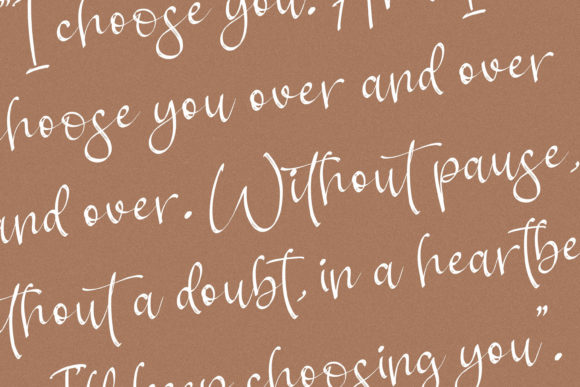 "I choose you. And I
choose you over and over
and over. Without pause,
without a doubt, in a heartbe
I'll keep choosing you".